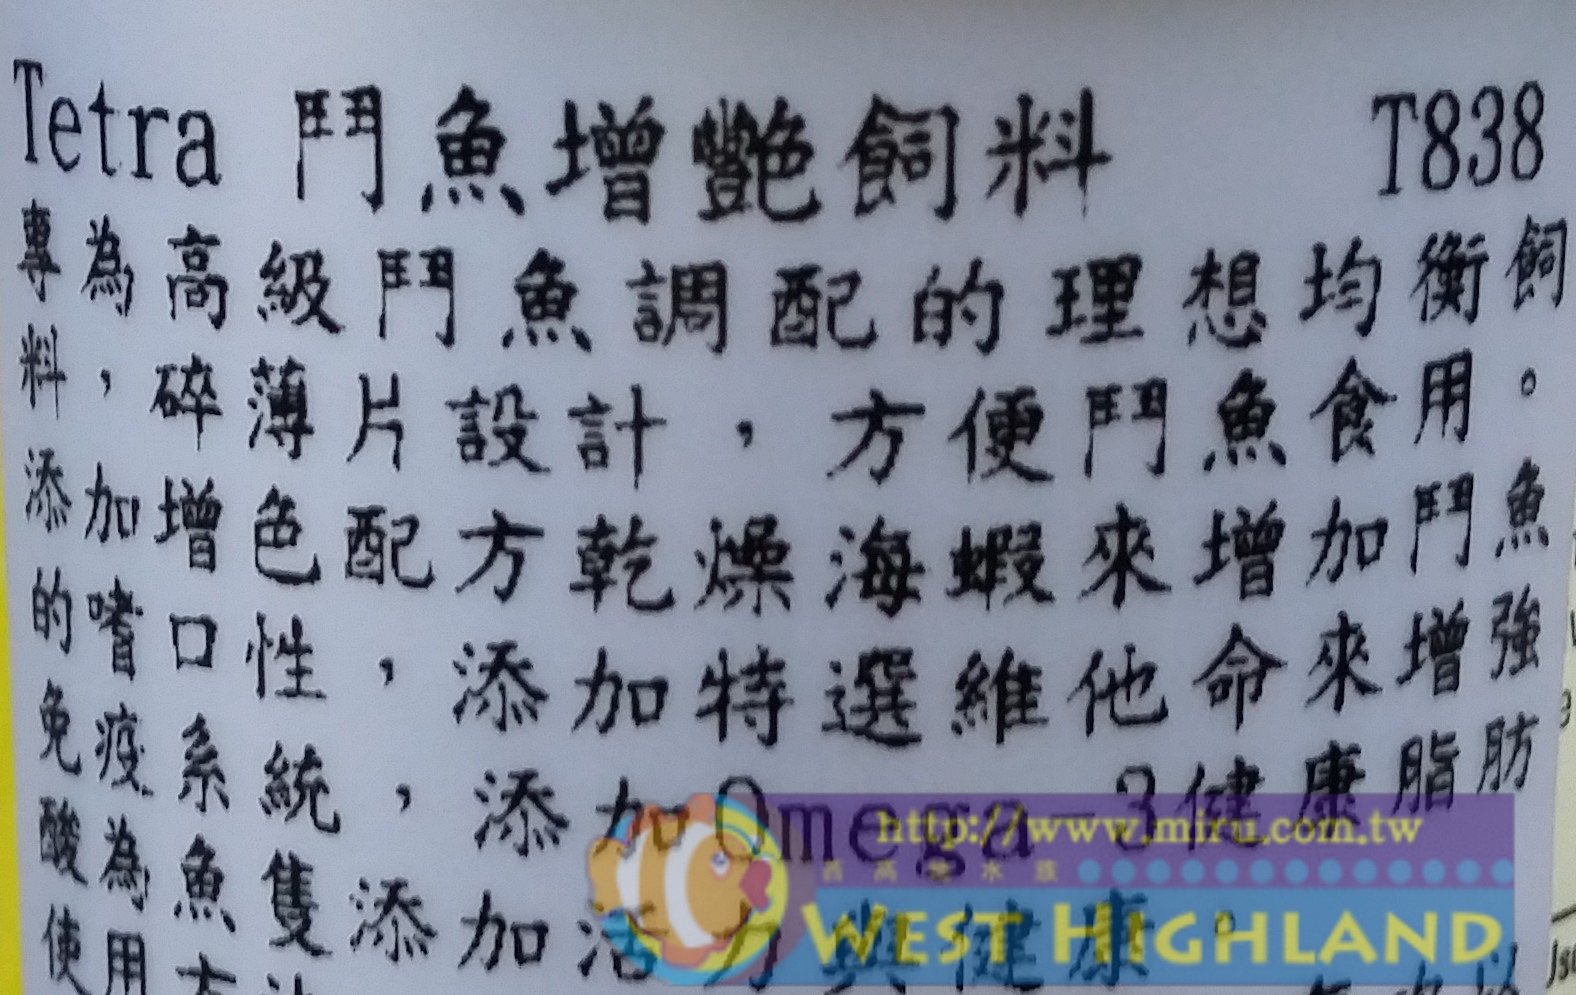 Tetra 鬥魚增豔飼料 T838
專為高級鬥魚調配的理想均衡飼
料，碎薄片設計，方便鬥魚食用。
添加增色配方乾燥海蝦來增加鬥魚
的嗜口性，添加特選維他命來增強
免疫系統，添加Omega-3健康脂肪
酸為魚隻添加活力與健康。
使用方法
http://www.miru.com.tw
西高地水族
WEST HIGHLAND